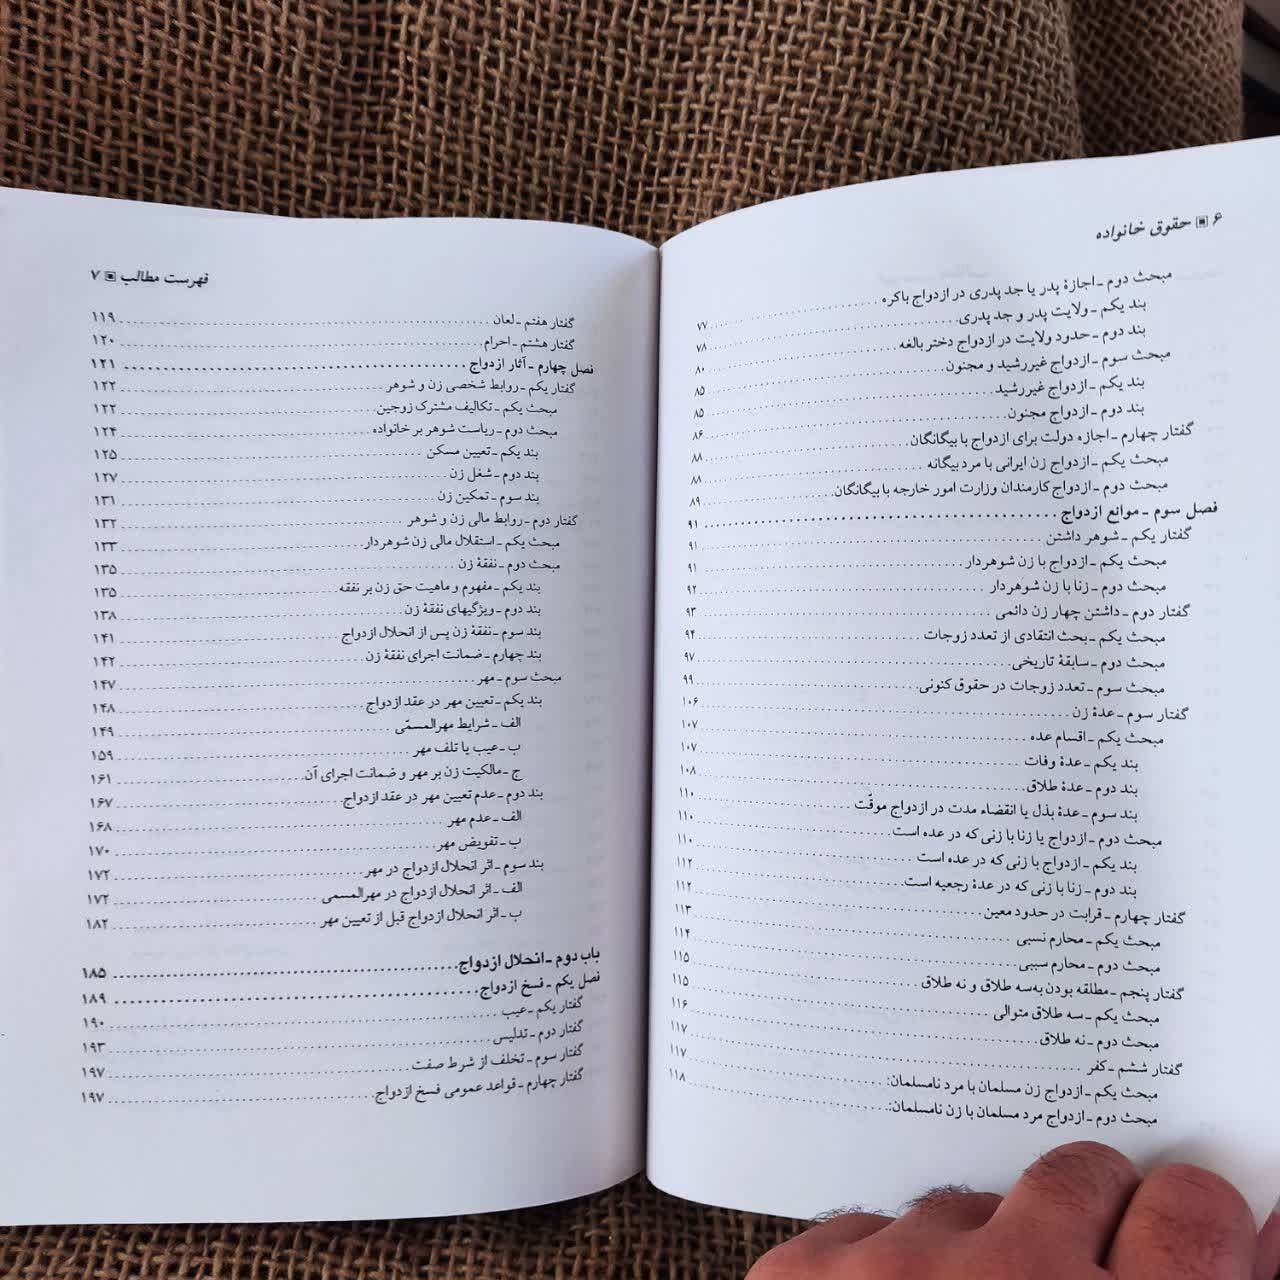 ۶ ▣ حقوق خانواده
مبحث دوم ـ اجازهٔ پدر یا جد پدری در ازدواج باکره ........ ۷۷
بند یکم ـ ولایت پدر و جد پدری ........ ۷۸
بند دوم ـ حدود ولایت در ازدواج دختر بالغه ........ ۸۰
مبحث سوم ـ ازدواج غیررشید و مجنون ........ ۸۵
بند یکم ـ ازدواج غیررشید ........ ۸۵
بند دوم ـ ازدواج مجنون ........ ۸۶
گفتار چهارم ـ اجازه دولت برای ازدواج با بیگانگان ........ ۸۸
مبحث یکم ـ ازدواج زن ایرانی با مرد بیگانه ........ ۸۸
مبحث دوم ـ ازدواج کارمندان وزارت امور خارجه با بیگانگان ........ ۸۹
فصل سوم ـ موانع ازدواج ........ ۹۱
گفتار یکم ـ شوهر داشتن ........ ۹۱
مبحث یکم ـ ازدواج با زن شوهردار ........ ۹۱
مبحث دوم ـ زنا با زن شوهردار ........ ۹۲
گفتار دوم ـ داشتن چهار زن دائمی ........ ۹۳
مبحث یکم ـ بحث انتقادی از تعدد زوجات ........ ۹۴
مبحث دوم ـ سابقهٔ تاریخی ........ ۹۷
مبحث سوم ـ تعدد زوجات در حقوق کنونی ........ ۹۹
گفتار سوم ـ عدهٔ زن ........ ۱۰۶
مبحث یکم ـ اقسام عده ........ ۱۰۷
بند یکم ـ عدهٔ وفات ........ ۱۰۷
بند دوم ـ عدهٔ طلاق ........ ۱۰۸
بند سوم ـ عدهٔ بذل یا انقضاء مدت در ازدواج موقّت ........ ۱۱۰
مبحث دوم ـ ازدواج یا زنا با زنی که در عده است ........ ۱۱۰
بند یکم ـ ازدواج با زنی که در عده است ........ ۱۱۰
بند دوم ـ زنا با زنی که در عدهٔ رجعیه است ........ ۱۱۲
گفتار چهارم ـ قرابت در حدود معین ........ ۱۱۲
مبحث یکم ـ محارم نسبی ........ ۱۱۳
مبحث دوم ـ محارم سببی ........ ۱۱۴
گفتار پنجم ـ مطلقه بودن به‌سه طلاق و نه طلاق ........ ۱۱۵
مبحث یکم ـ سه طلاق متوالی ........ ۱۱۵
مبحث دوم ـ نه طلاق ........ ۱۱۶
گفتار ششم ـ کفر ........ ۱۱۷
مبحث یکم ـ ازدواج زن مسلمان با مرد نامسلمان: ........ ۱۱۷
مبحث دوم ـ ازدواج مرد مسلمان با زن نامسلمان: ........ ۱۱۸
فهرست مطالب ▣ ۷
گفتار هفتم ـ لعان ........ ۱۱۹
گفتار هشتم ـ احرام ........ ۱۲۰
فصل چهارم ـ آثار ازدواج ........ ۱۲۱
گفتار یکم ـ روابط شخصی زن و شوهر ........ ۱۲۲
مبحث یکم ـ تکالیف مشترک زوجین ........ ۱۲۲
مبحث دوم ـ ریاست شوهر بر خانواده ........ ۱۲۴
بند یکم ـ تعیین مسکن ........ ۱۲۵
بند دوم ـ شغل زن ........ ۱۲۷
بند سوم ـ تمکین زن ........ ۱۳۱
گفتار دوم ـ روابط مالی زن و شوهر ........ ۱۳۲
مبحث یکم ـ استقلال مالی زن شوهردار ........ ۱۳۳
مبحث دوم ـ نفقهٔ زن ........ ۱۳۵
بند یکم ـ مفهوم و ماهیت حق زن بر نفقه ........ ۱۳۵
بند دوم ـ ویژگیهای نفقهٔ زن ........ ۱۳۸
بند سوم ـ نفقهٔ زن پس از انحلال ازدواج ........ ۱۴۱
بند چهارم ـ ضمانت اجرای نفقهٔ زن ........ ۱۴۲
مبحث سوم ـ مهر ........ ۱۴۷
بند یکم ـ تعیین مهر در عقد ازدواج ........ ۱۴۸
الف ـ شرایط مهرالمسمّی ........ ۱۴۹
ب ـ عیب یا تلف مهر ........ ۱۵۹
ج ـ مالکیت زن بر مهر و ضمانت اجرای آن ........ ۱۶۱
بند دوم ـ عدم تعیین مهر در عقد ازدواج ........ ۱۶۷
الف ـ عدم مهر ........ ۱۶۸
ب ـ تفویض مهر ........ ۱۷۰
بند سوم ـ اثر انحلال ازدواج در مهر ........ ۱۷۲
الف ـ اثر انحلال ازدواج در مهرالمسمی ........ ۱۷۲
ب ـ اثر انحلال ازدواج قبل از تعیین مهر ........ ۱۸۲
باب دوم ـ انحلال ازدواج ........ ۱۸۵
فصل یکم ـ فسخ ازدواج ........ ۱۸۹
گفتار یکم ـ عیب ........ ۱۹۰
گفتار دوم ـ تدلیس ........ ۱۹۳
گفتار سوم ـ تخلف از شرط صفت ........ ۱۹۷
گفتار چهارم ـ قواعد عمومی فسخ ازدواج ........ ۱۹۷